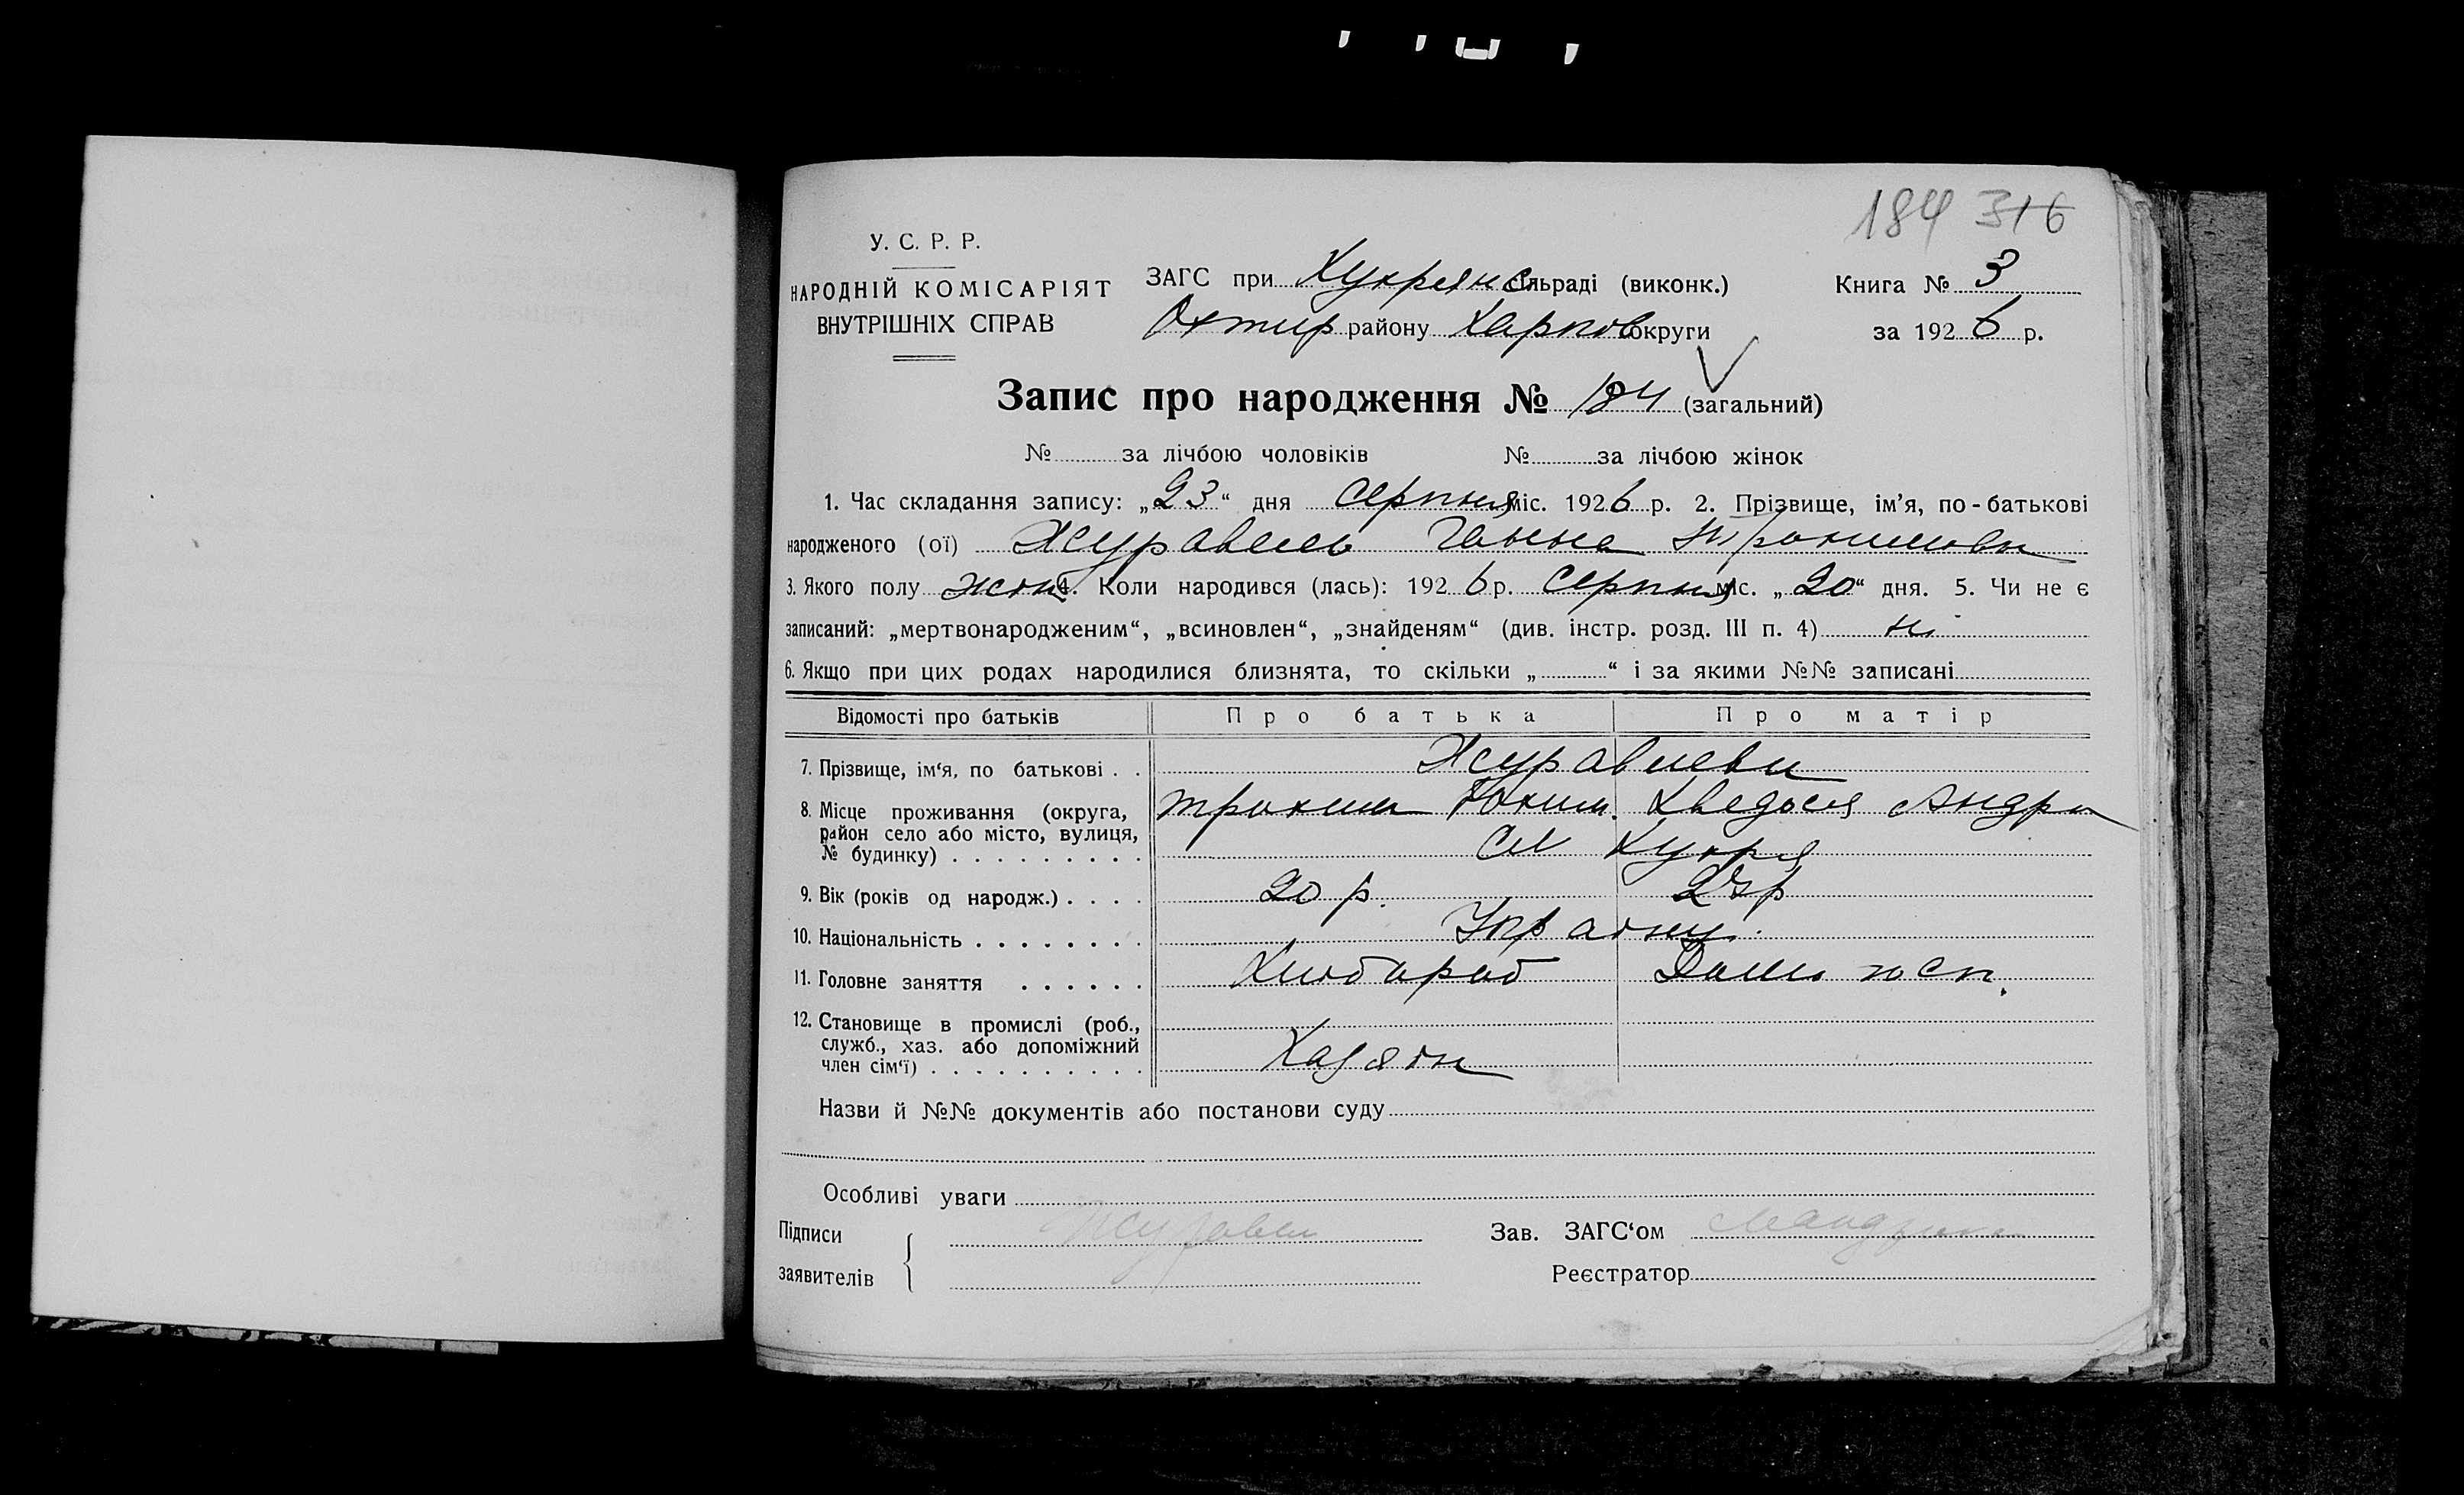 184 316
У. С. Р. Р.
НАРОДНІЙ КОМІСАРІЯТ
ВНУТРІШНІХ СПРАВ
ЗАГС при Кукрянс сільраді (виконк.)
Охтир району Харков округи
Книга № 3
за 1926 р.
Запис про народження № 184 (загальний)
№ за лічбою чоловіків № за лічбою жінок
1. Час складання запису: „23“ дня серпня міс. 1926 р. 2. Прізвище, ім’я, по-батькові
народженого (ої) Журавель Ганна Трохимовн
3. Якого полу жін 4. Коли народився (лась): 1926 р. серпня міс. „20“ дня. 5. Чи не є
записаний: „мертвонародженим“, „всиновлен“, „знайденям“ (див. інстр. розд. III п. 4) ні
6. Якщо при цих родах народилися близнята, то скільки „ “ і за якими №№ записані
Відомості про батьків Про батька Про матір
7. Прізвище, ім‘я, по батькові . . Журавлеви
8. Місце проживання (округа, Трохим Юхим. Хведося Андр
район село або місто, вулиця,
№ будинку) . . . . . . . . . Сл Кукря
9. Вік (років од народж.) . . . . 20 р.
10. Національність . . . . . . . . Україн.
11. Головне заняття . . . . . . Хлібороб Дом. госп.
12. Становище в промислі (роб.,
служб., хаз. або допоміжний
член сім‘ї) . . . . . . . . . . Хазяін
Назви й №№ документів або постанови суду
Особливі уваги
Підписи
заявителів
Журавель
Зав. ЗАГС‘ом
Реєстратор